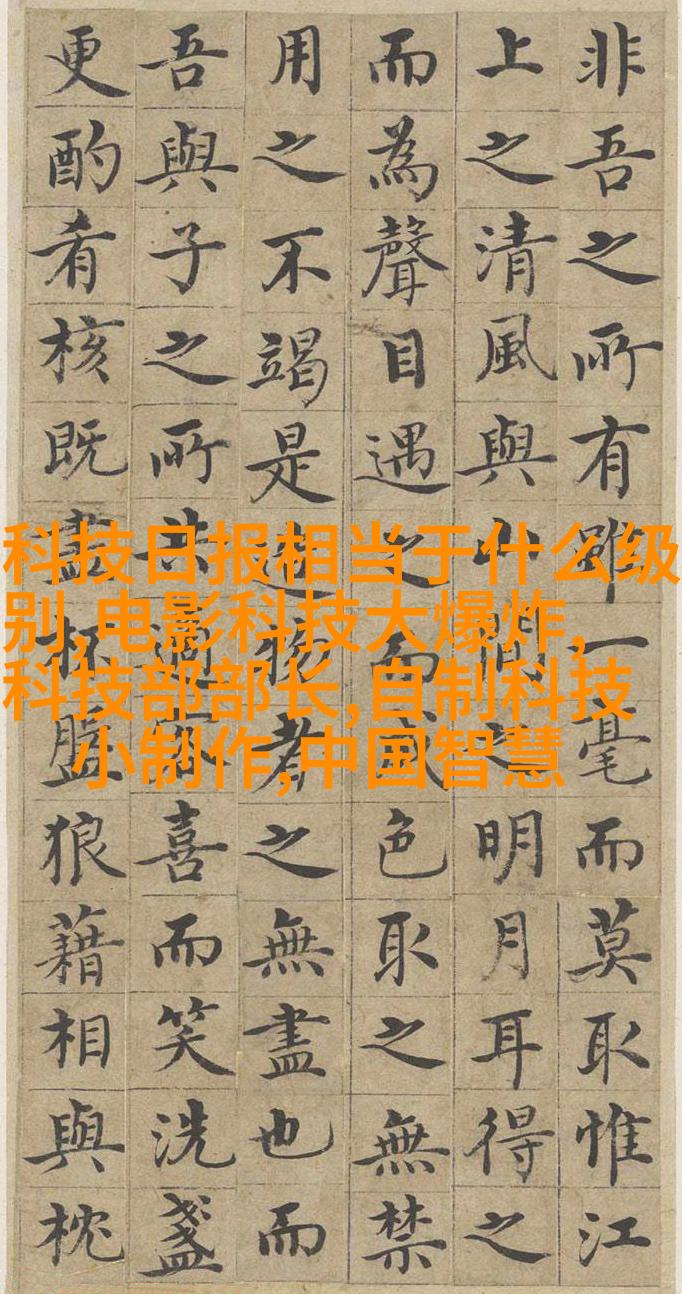 非吾之所有雖一毫而莫取惟江
上之清風與山間之明月耳得之
而為聲目遇之而成色取之無禁
用之不竭是造物者之無盡也而
吾與子之所共適客喜而笑洗盞
更酌肴核既盡杯盤狼藉相與枕
科技日报相当于什么级
别,电影科技大爆炸,
科技部部长,自制科技
小制作,中国智慧